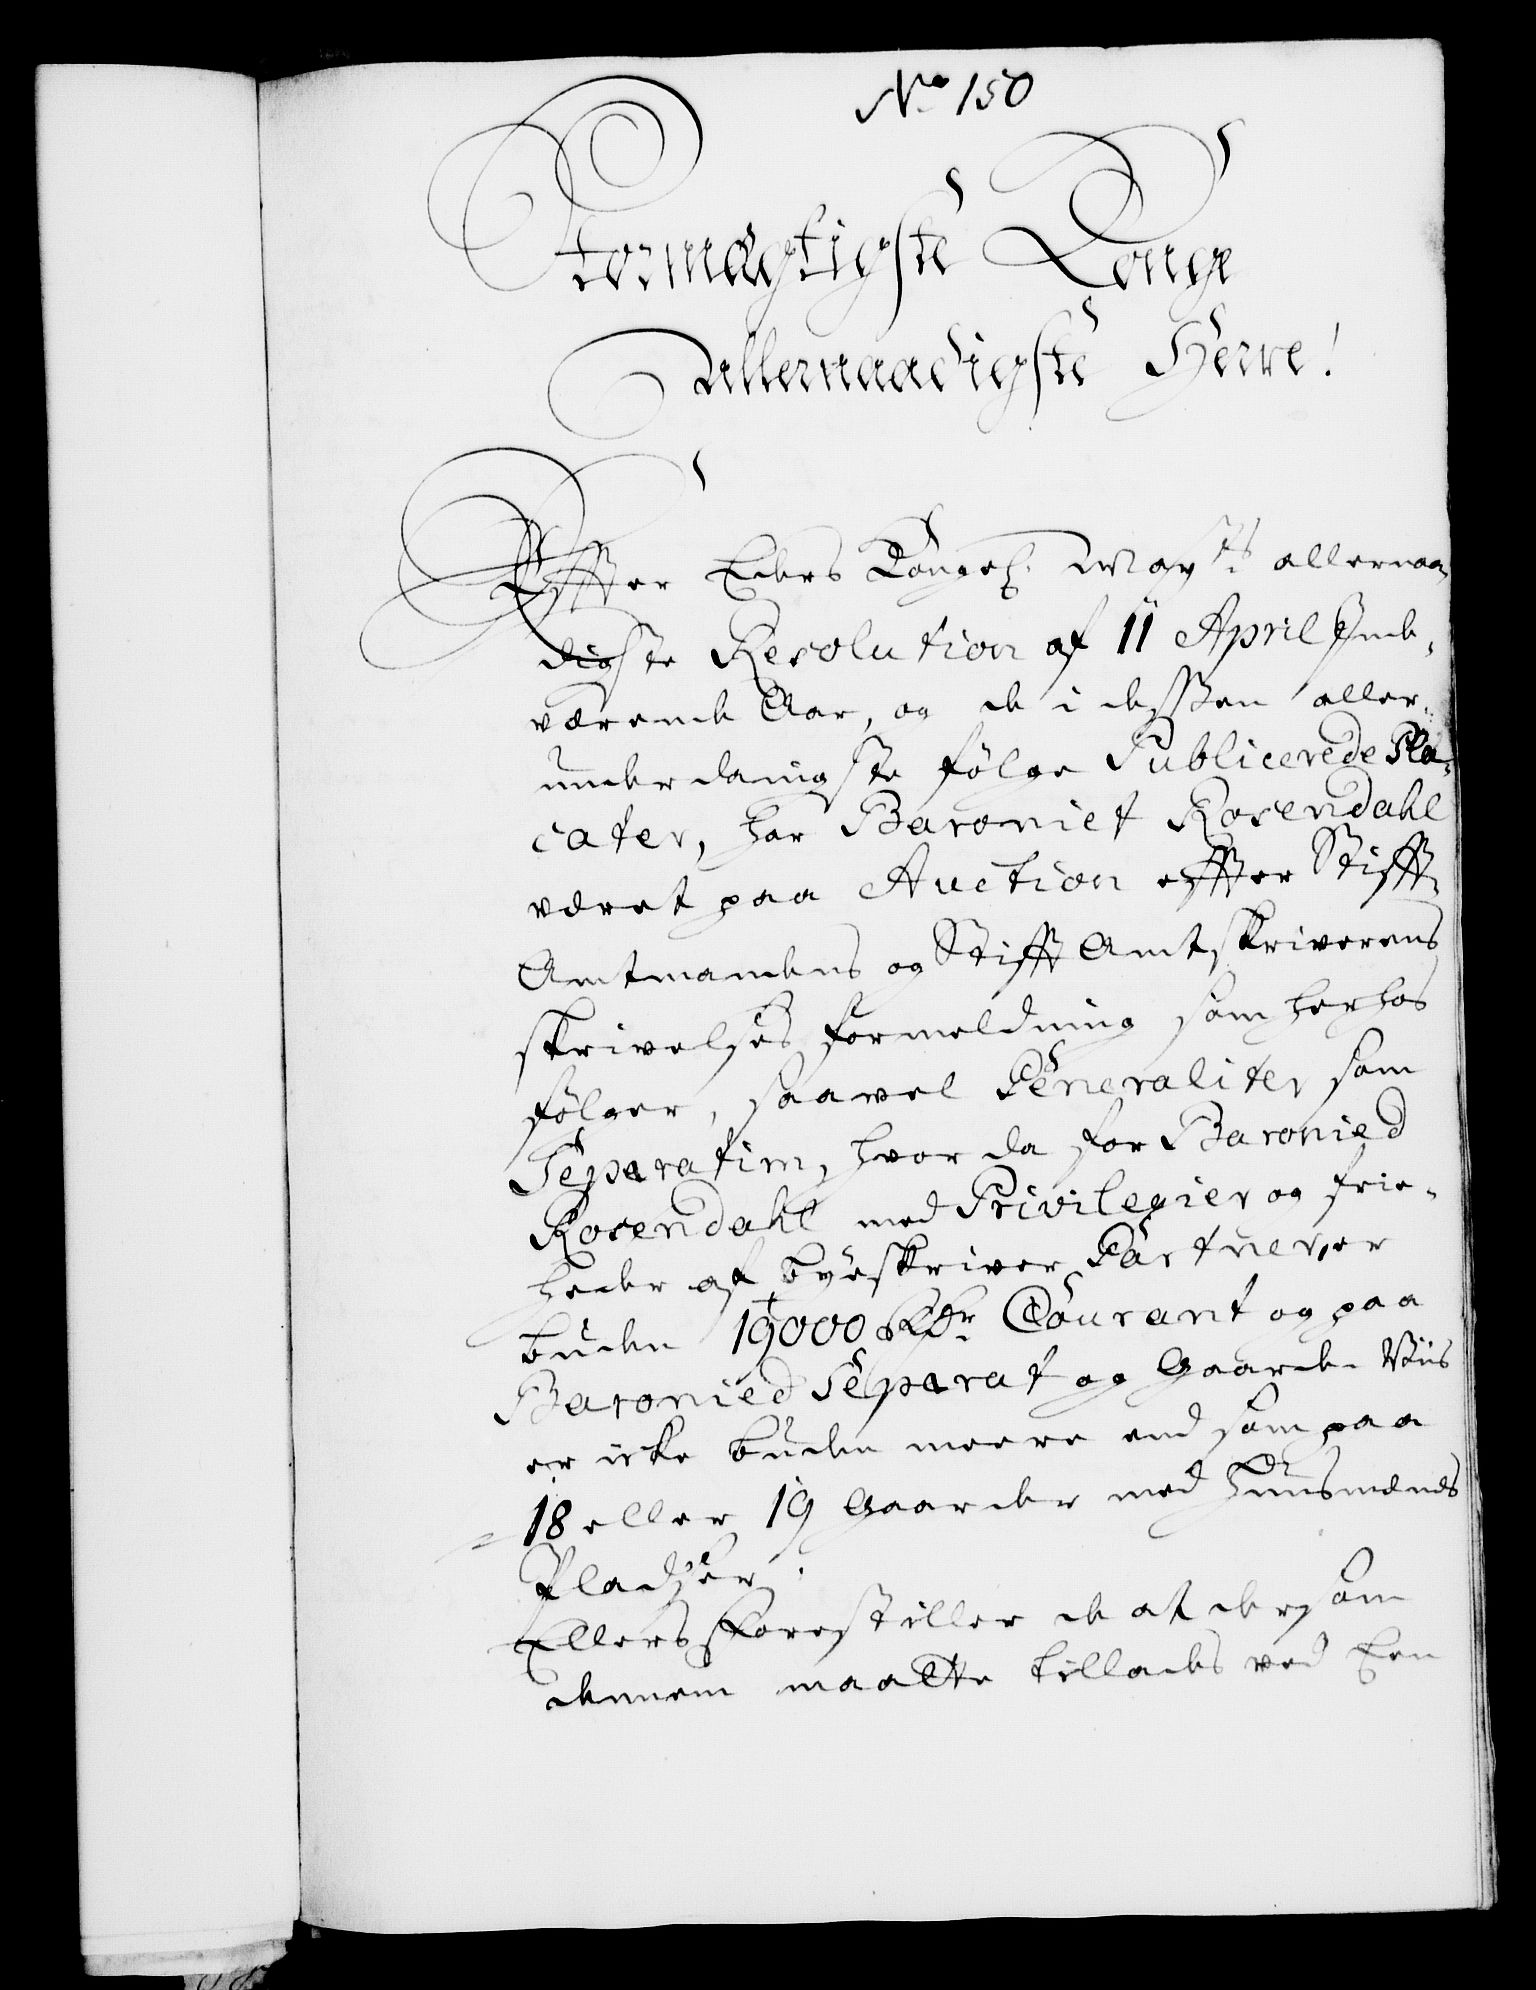 No 150
Stormægtigste Konge
Allernaadigste Herre!
Effter Eders Kongel. Mayts allernaa
digste Resolution af 11 April Inde-
værende Aar, og de i dessen aller-
underdanigste følge Publicerede Pla-
cater, har Baroniet Rosendahl
været paa Auction effter Stiffts
Amtmandens og Stifft Amtskriverens
skrivelses formeldning som herhos
følger, saavel Generaliter som
Separatim, hvor da for Baronied
Rosendahl med Privilegier og frie-
heder af byeskriver Gartner, er
buden 19000 Rdr Courant og paa
Baronied Separat og Gaarde Viis
er icke buden meere end som paa
18 eller 19 Gaarder med Huusmænds
Pladzer.
Ellers forestiller de at dersom
dennem maatte tillades ved Een